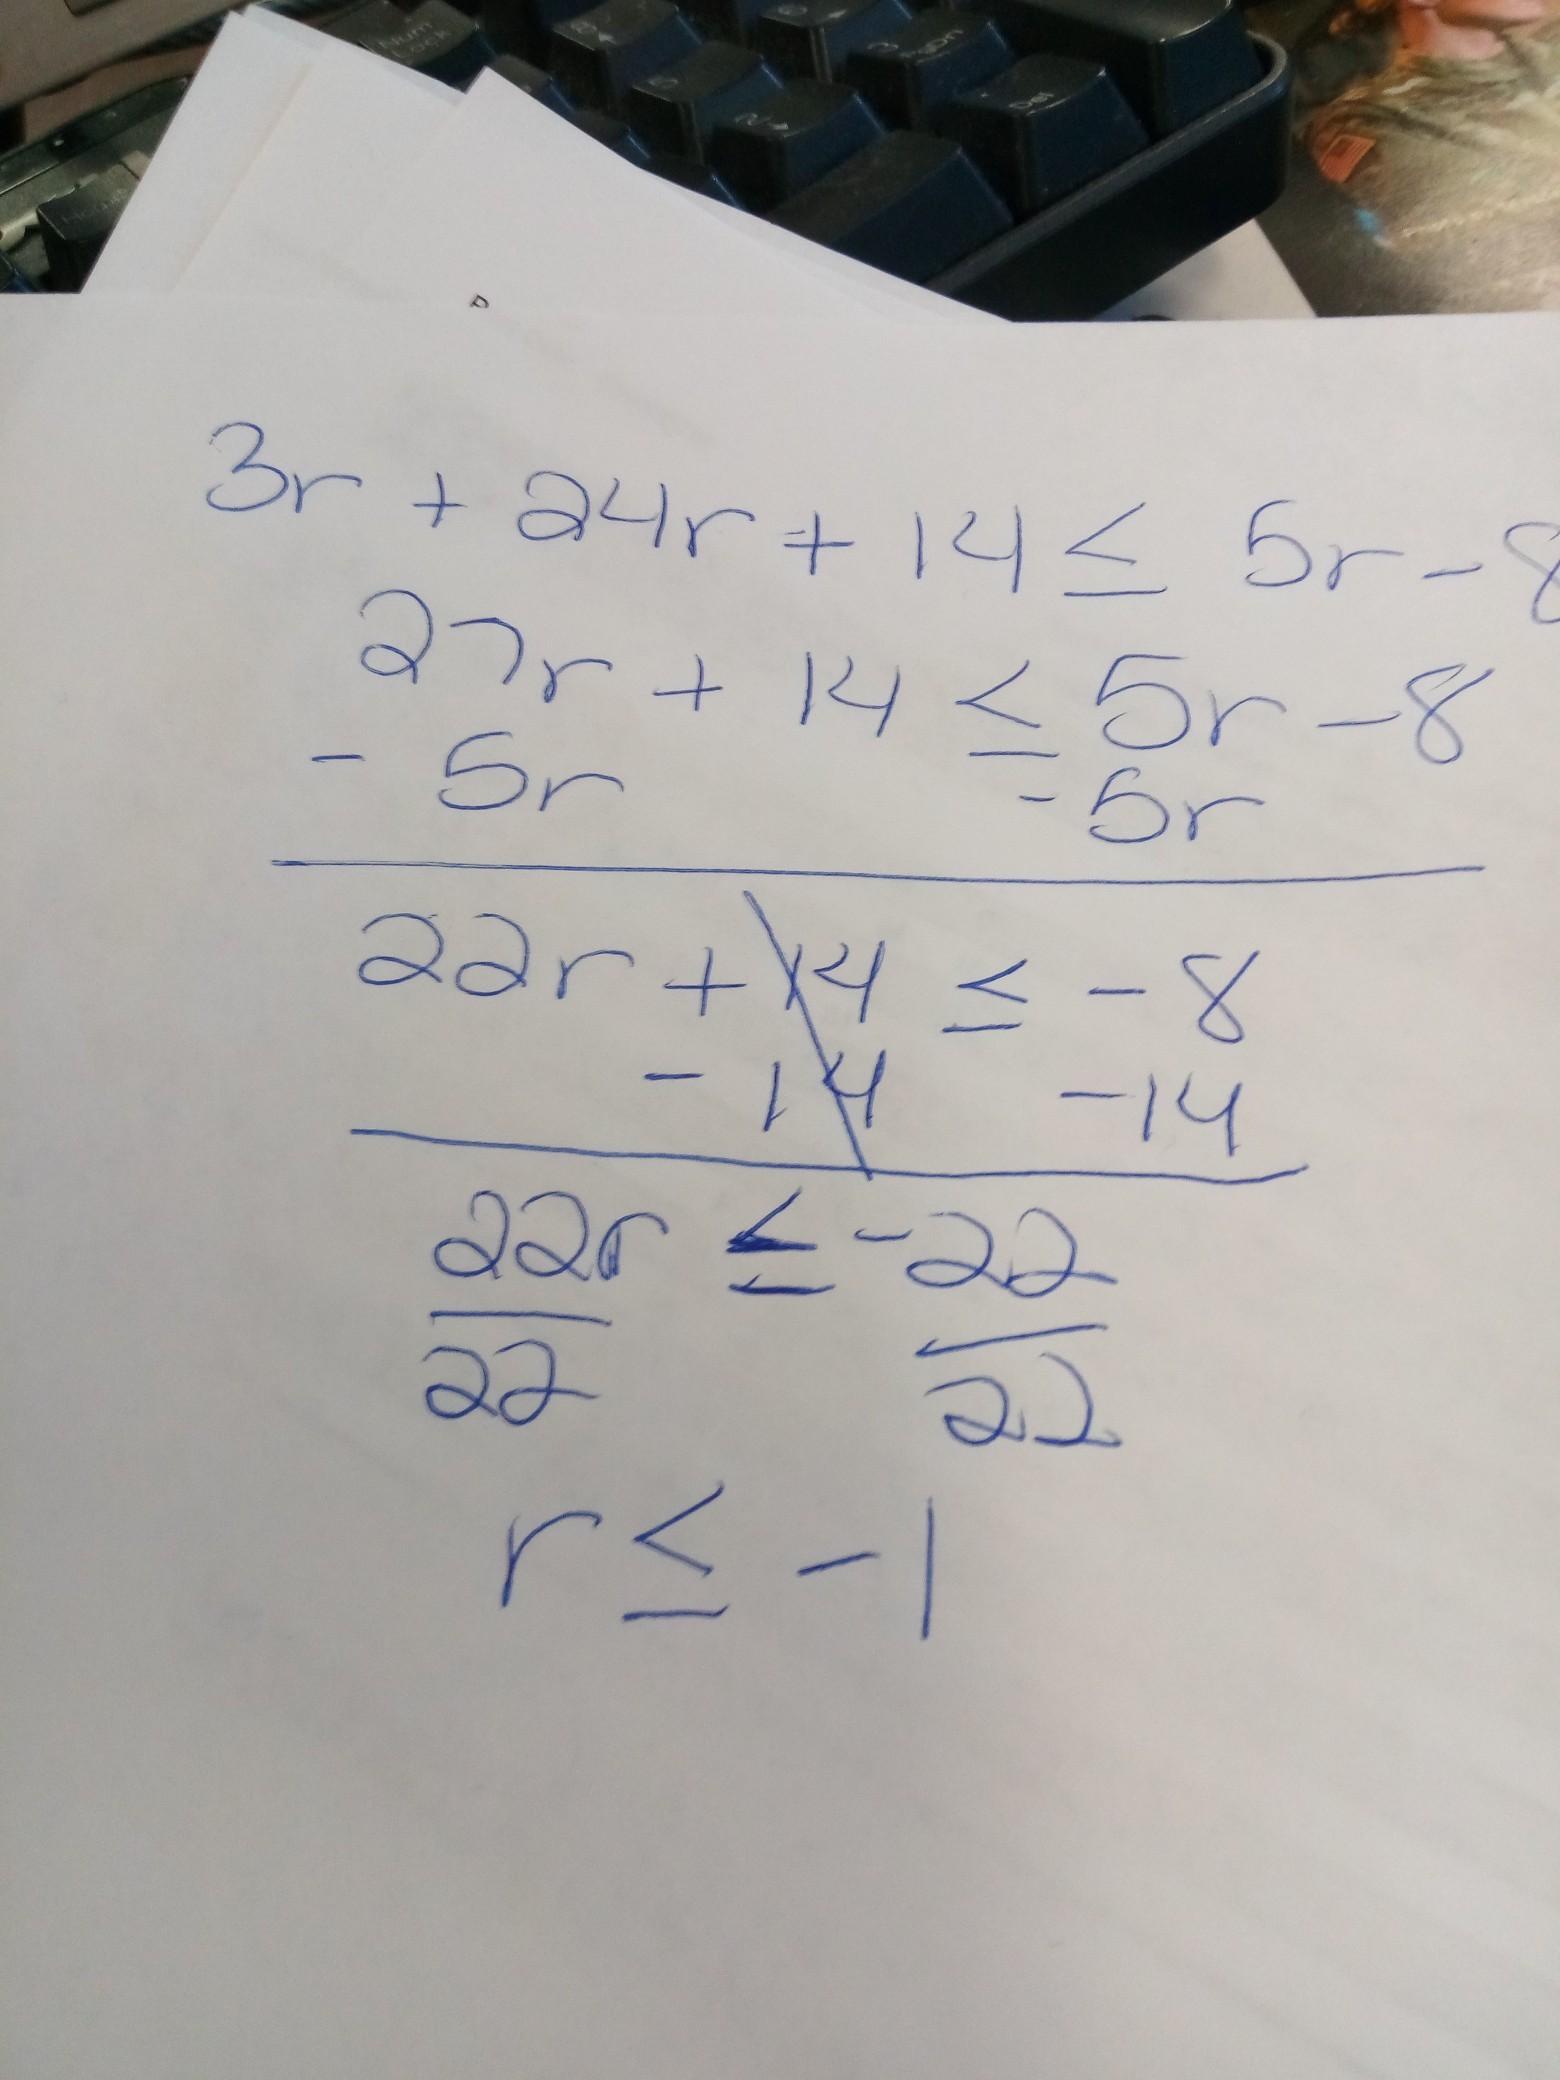 Num Lock
Del
3r + 24r + 14 ≤ 5r - 8
27r + 14 ≤ 5r - 8
- 5r - 5r
22r + 14 ≤ - 8
- 14 - 14
22r ≤ - 22
22 22
r ≤ - 1